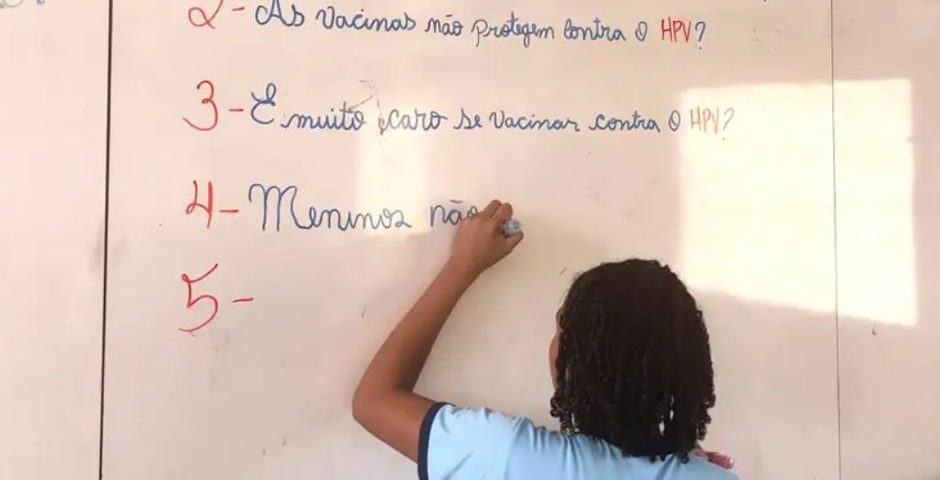 2- As Vacinas não protegem contra o HPV?
3- É muito caro se vacinar contra o HPV?
4- Meninos não
5-